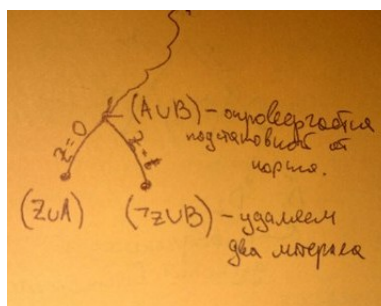 (A∪B) – опровергается
подстановкой от
корня.
z=0
z=1
(Z∪A)
(¬Z∪B) – удаляем
два литерала